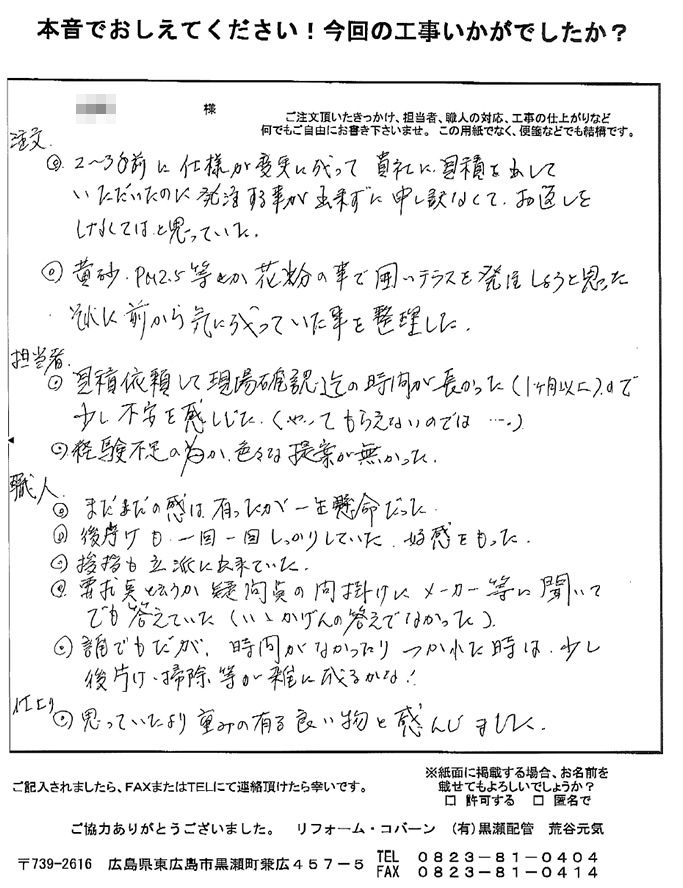 本音でおしえてください！今回の工事いかがでしたか？
様
ご注文頂いたきっかけ、担当者、職人の対応、工事の仕上がりなど
何でもご自由にお書き下さいませ。この用紙でなく、便箋などでも結構です。
注文
◎ 2～3年前に仕様が変更に成って貴社に見積を出して
いただいたのに発注する事が出来ずに申し訳なくて、お返しを
しなくてはと思っていた。
◎ 黄砂、PM2.5等とか花粉の事で囲いテラスを発注しようと思った
それに前から気に成っていた事を整理した。
担当者
◎ 見積依頼して現場確認迄の時間が長かった（1ヶ月以上）ので
少し不安を感じた。（やってもらえないのでは…。）
◎ 経験不足の為か、色々な提案が無かった。
職人
◎ まだまだの感は有ったが一生懸命だった。
◎ 後片付も一回一回しっかりしていた、好感をもった。
◎ 挨拶も立派に出来ていた。
◎ 要求と云うか疑問点の問掛けにメーカー等に聞いて
でも答えていた（いいかげんの答えでなかった）。
◎ 誰でもだが、時間がなかったりつかれた時は、少し
後片付、掃除等が雑に成るかな！
仕上り
◎ 思っていたより重みの有る良い物と感んじました。
ご記入されましたら、FAXまたはTELにて連絡頂けたら幸いです。
※紙面に掲載する場合、お名前を
載せてもよろしいでしょうか？
□ 許可する □ 匿名で
ご協力ありがとうございました。 リフォーム・コバーン （有）黒瀬配管 荒谷元気
〒739-2616 広島県東広島市黒瀬町兼広４５７－５
TEL ０８２３－８１－０４０４
FAX ０８２３－８１－０４１４